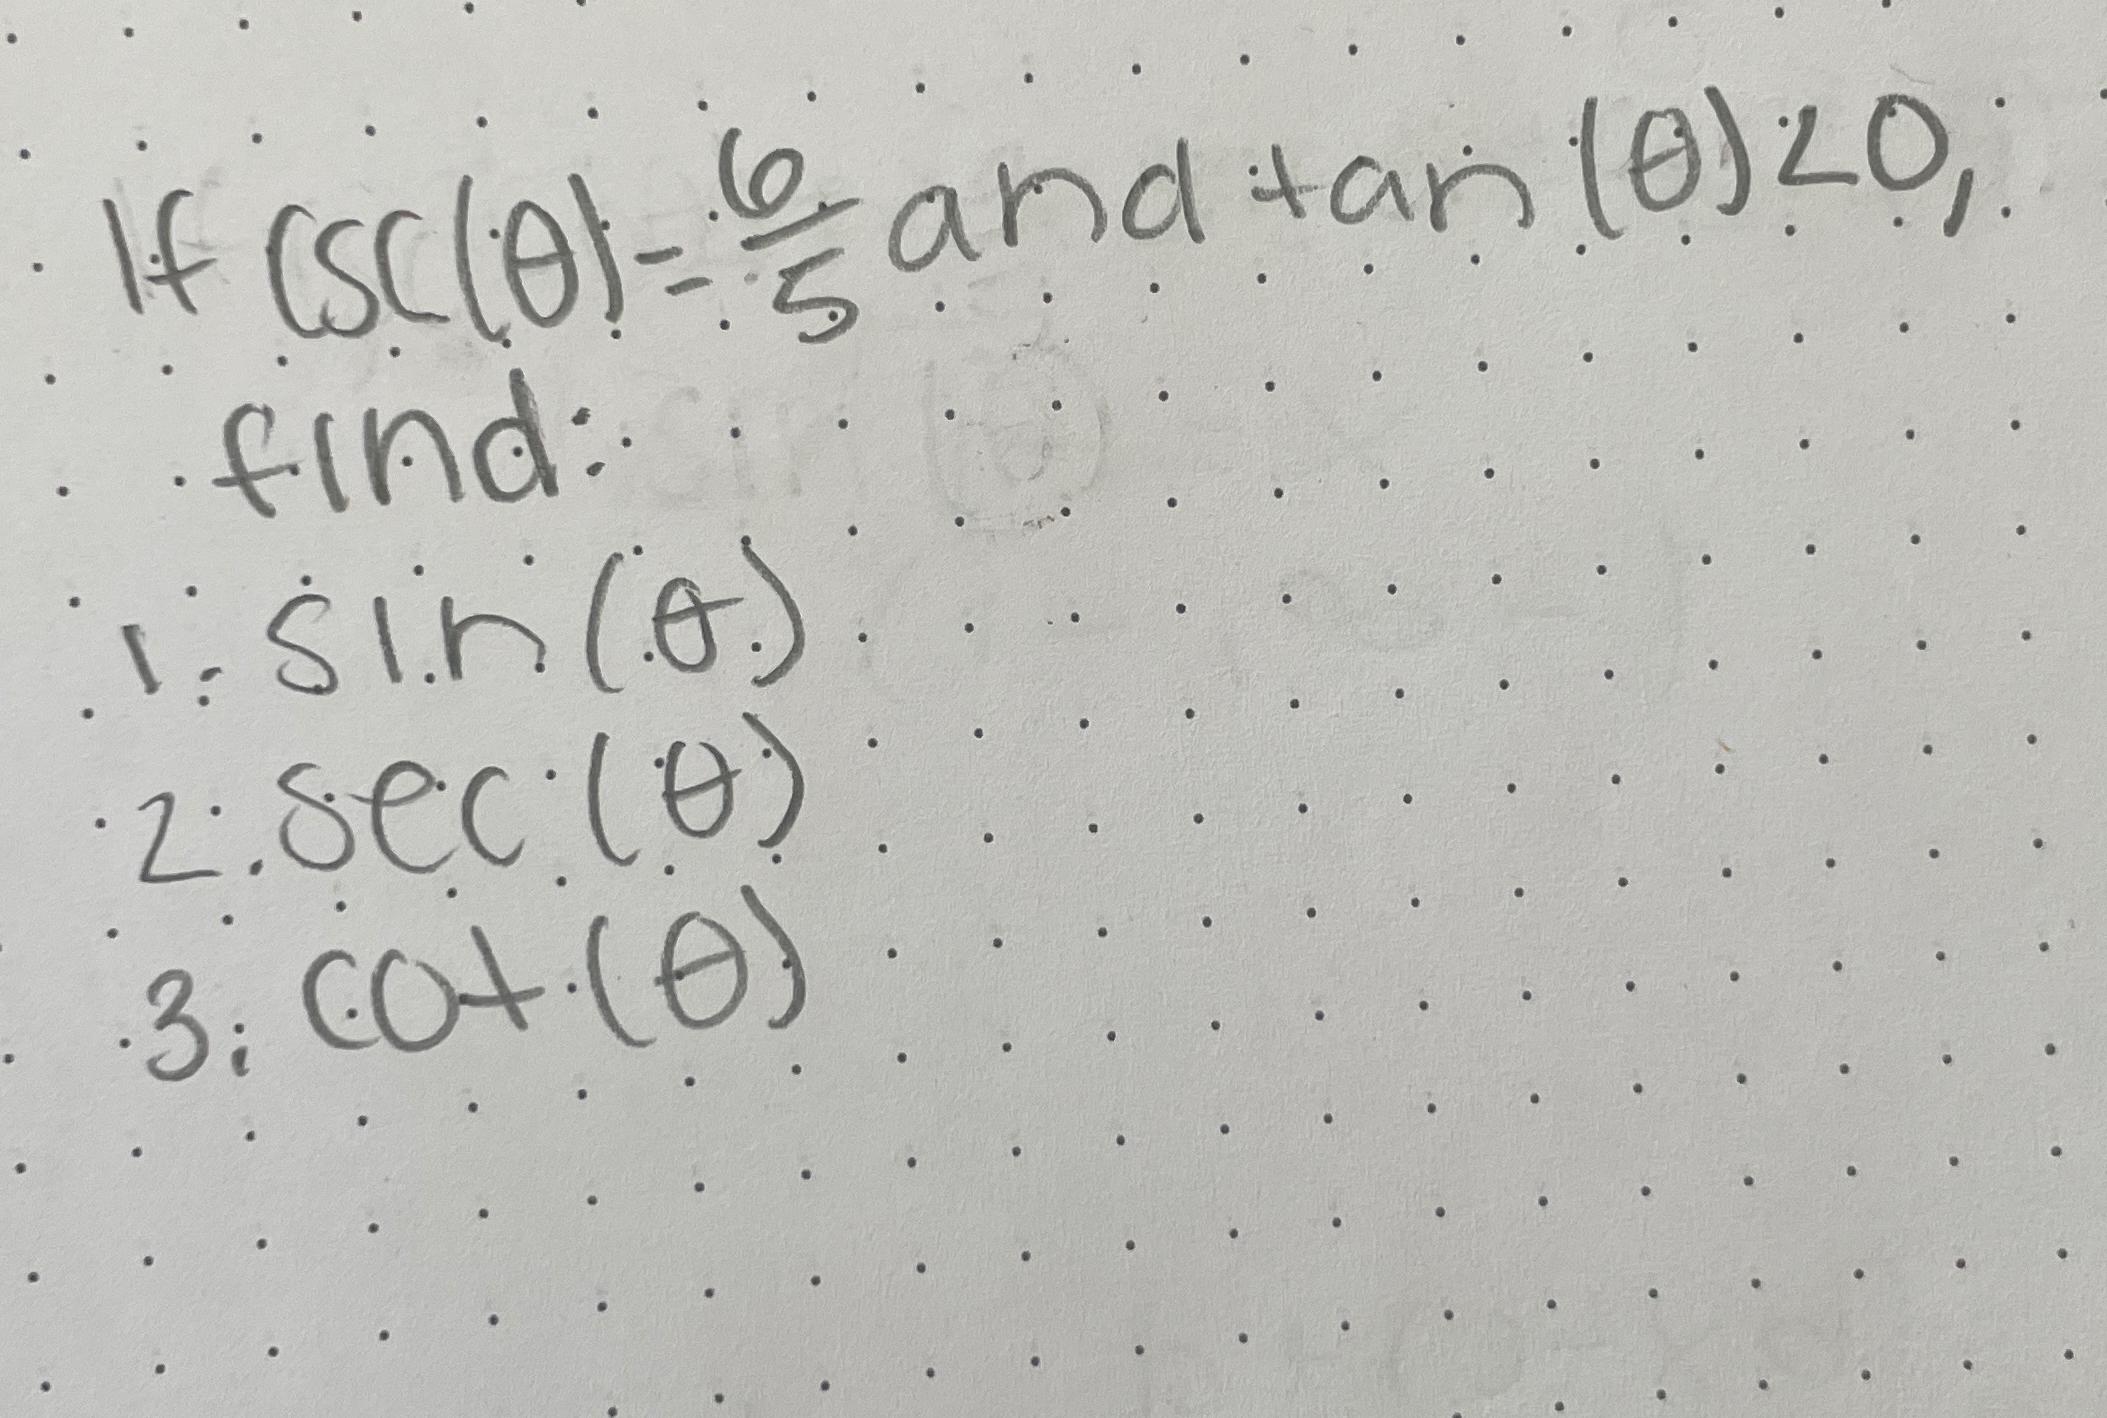 If csc(θ) = 6/5 and tan(θ) < 0,
find:
1. sin(θ)
2. sec(θ)
3. cot(θ)